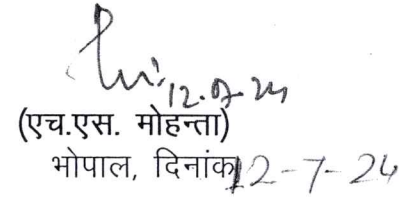 12.07.24
(एच.एस. मोहन्ता)
भोपाल, दिनांक 12-7-24